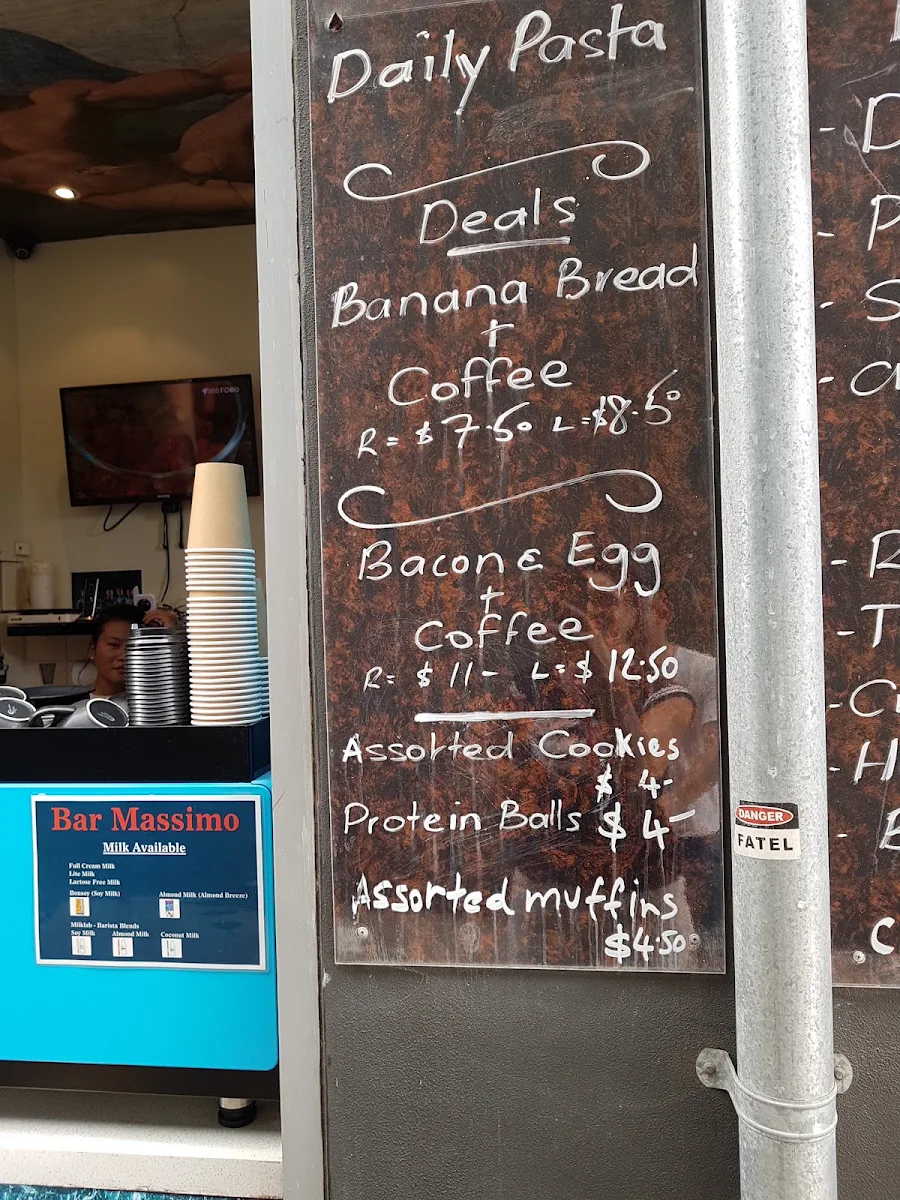 Daily Pasta
Deals
Banana Bread
+
Coffee
R = $7.50 L = $8.50
Bacon & Egg
+
Coffee
R = $11- L = $12.50
Assorted Cookies
$4-
Protein Balls $4-
Assorted muffins
$4.50
SBS FOOD
Bar Massimo
Milk Available
Full Cream Milk
Lite Milk
Lactose Free Milk
Bonsoy (Soy Milk) Almond Milk (Almond Breeze)
Milklab - Barista Blends
Soy Milk Almond Milk Coconut Milk
DANGER
FATEL